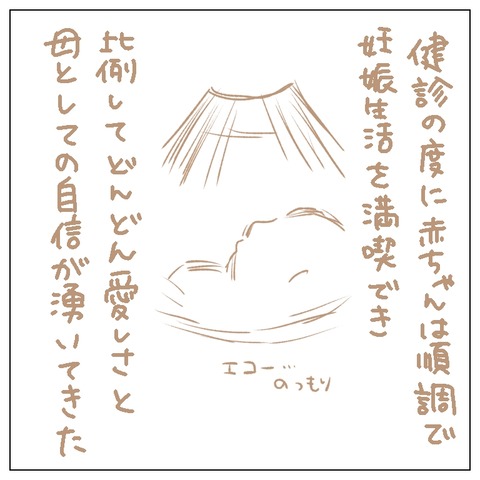 健診の度に赤ちゃんは順調で
妊娠生活を満喫でき
比例してどんどん愛しさと
母としての自信が湧いてきた
エコー…
のつもり